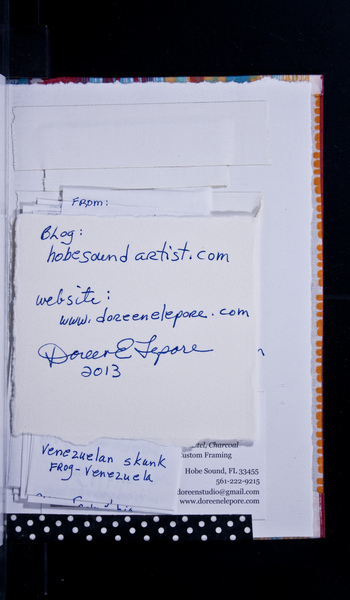 FROM:
Blog:
hobesoundartist.com
website:
www.doreenelepore.com
Doreen E Lepore
2013
Venezuelan skunk
FROG-Venezuela
Charcoal
Custom Framing
Hobe Sound, FL 33455
561-222-9215
doreenstudio@gmail.com
www.doreenelepore.com